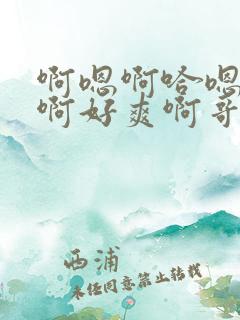 啊嗯啊哈嗯
啊好爽啊哥
西浦
未经同意禁止转载